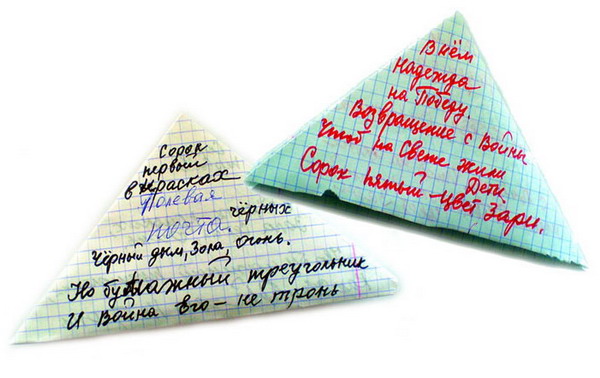 Сорок
первый
в красках
Полевая
чёрных
почта.
Чёрный дым, Зола, огонь.
Но бумажный треугольник
И Война его – не тронь
В нём
Надежда
на Победу.
Возвращение с Войны
Чтоб на Свете жили
Дети
Сорок пятый – цвет Зари.